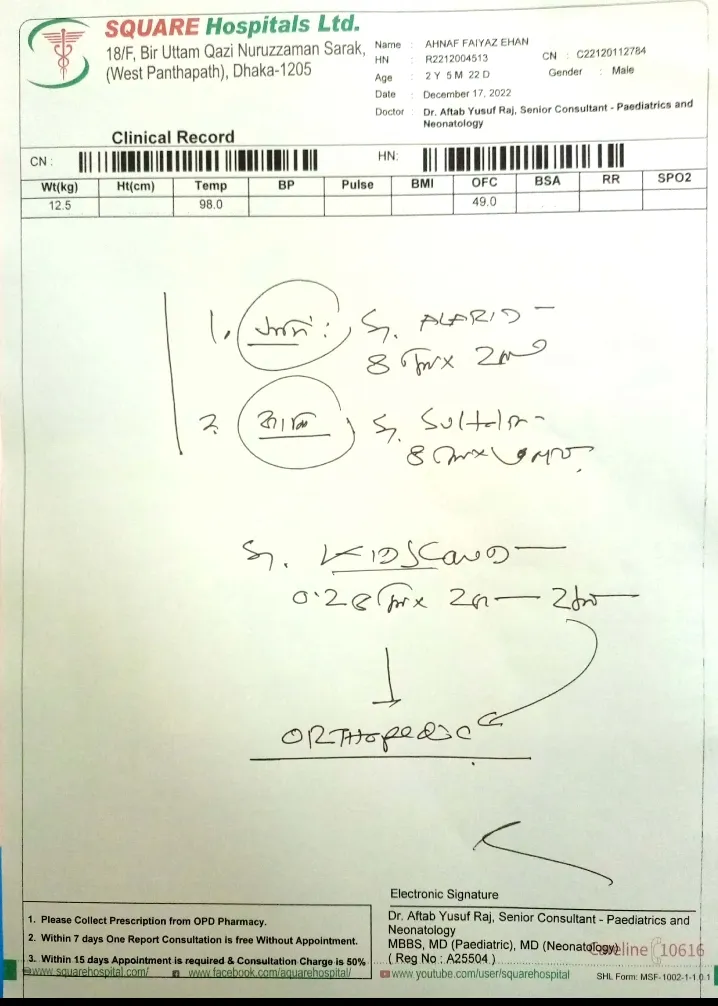 SQUARE Hospitals Ltd.
18/F, Bir Uttam Qazi Nuruzzaman Sarak,
(West Panthapath), Dhaka-1205
Name : AHNAF FAIYAZ EHAN
HN : R2212004513 CN : C22120112784
Age : 2 Y 5 M 22 D Gender : Male
Date : December 17, 2022
Doctor : Dr. Aftab Yusuf Raj, Senior Consultant - Paediatrics and
Neonatology
Clinical Record
CN : HN:
Wt(kg) Ht(cm) Temp BP Pulse BMI OFC BSA RR SPO2
12.5 98.0 49.0
1. সর্দি : Sy. ALARID -
৪ মিঃ x
২. কাশি Sy. Sultolin -
৪ মিঃ x
Sy.
ORTHOPEDIC
Electronic Signature
Dr. Aftab Yusuf Raj, Senior Consultant - Paediatrics and
Neonatology
MBBS, MD (Paediatric), MD (Neonatology)
( Reg No : A25504 )
1. Please Collect Prescription from OPD Pharmacy.
2. Within 7 days One Report Consultation is free Without Appointment.
3. Within 15 days Appointment is required & Consultation Charge is 50%
10616
www.squarehospital.com/ www.facebook.com/aquarehospital/ www.youtube.com/user/squarehospital
SHL Form: MSF-1002-1-1.0.1